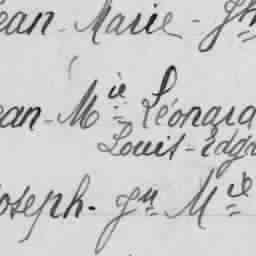 ean - Marie - Jh
ean - M ie Léonard
Louis - Edg
oseph - Jn M ie